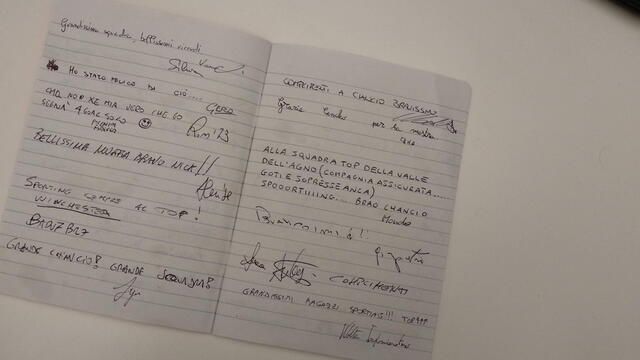 Grandissima squadra, bellissimi ricordi
Silvia
HO STATO MEGIO DI CIÓ....
CHA NON XE MIA VERO CHE GO
SEGNÀ 4 GOAL SOLO
BELLISSIMA MOSTRA BRAVO NICK!!
SPORTING SEMPRE AL TOP!
WINCHESTER
GRANDE CHANCIO! GRANDE SQUADRA!
COMPLIMENTI A CIANCIO BRAVISSIMO
Grazie per la mostra
ALLA SQUADRA TOP DELLA VALLE
DELL'AGNO (COMPAGNIA ASSICURATA.....
GOTI E SOPRESSE ANCA)
SPOOORTIIIING.... BRAO CHANCIO
Mondo
Bravissimi!!
COMPLIMENTI
GRANDISSIMI RAGAZZI SPORTING!!! TOP